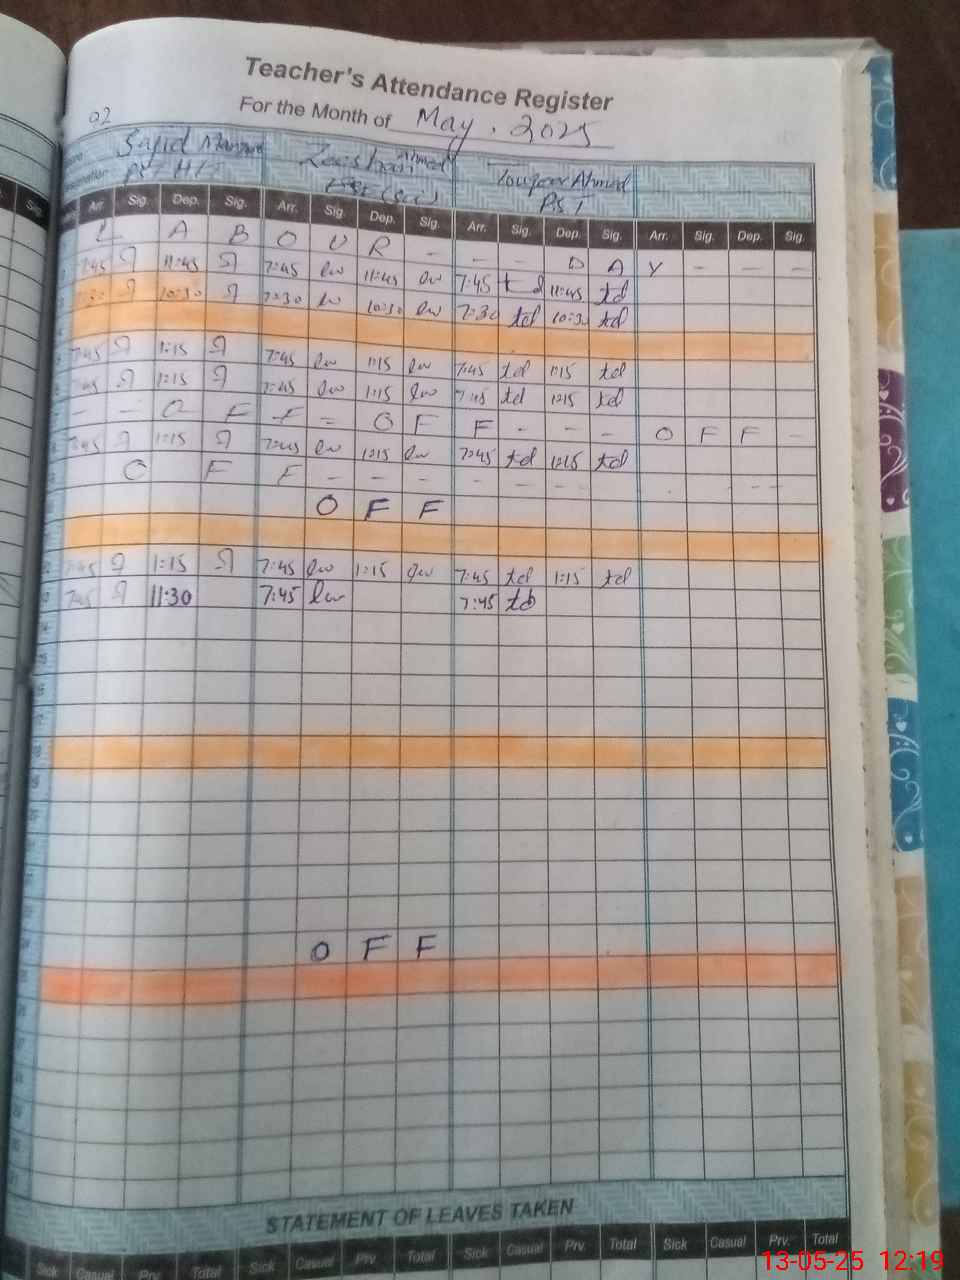 Teacher's Attendance Register
For the Month of May, 2025
02
Sajid Zeeshan Ahmed Touqeer Ahmed
PST PST
Arr. Sig. Dep. Sig. Arr. Sig. Dep. Sig. Arr. Sig. Dep. Sig. Arr. Sig. Dep. Sig.
L A B O U R - - - D A Y - - -
7:45 11:45 7:45 11:45 7:45 td 11:45 td
7:30 10:30 7:30 10:30 7:30 td 10:30 td
7:45 1:15 7:45 1:15 7:45 td 1:15 td
7:45 1:15 7:45 1:15 7:45 td 1:15 td
- - O F F = O F F - - - O F F -
7:45 1:15 7:45 1:15 7:45 td 1:15 td
O F F - - - - - - - - - -
O F F
7:45 1:15 7:45 1:15 7:45 td 1:15 td
7:45 11:30 7:45 7:45 td
O F F
STATEMENT OF LEAVES TAKEN
Sick Casual Prv. Total Sick Casual Prv. Total Sick Casual Prv. Total Sick Casual Prv. Total
13-05-25 12:19